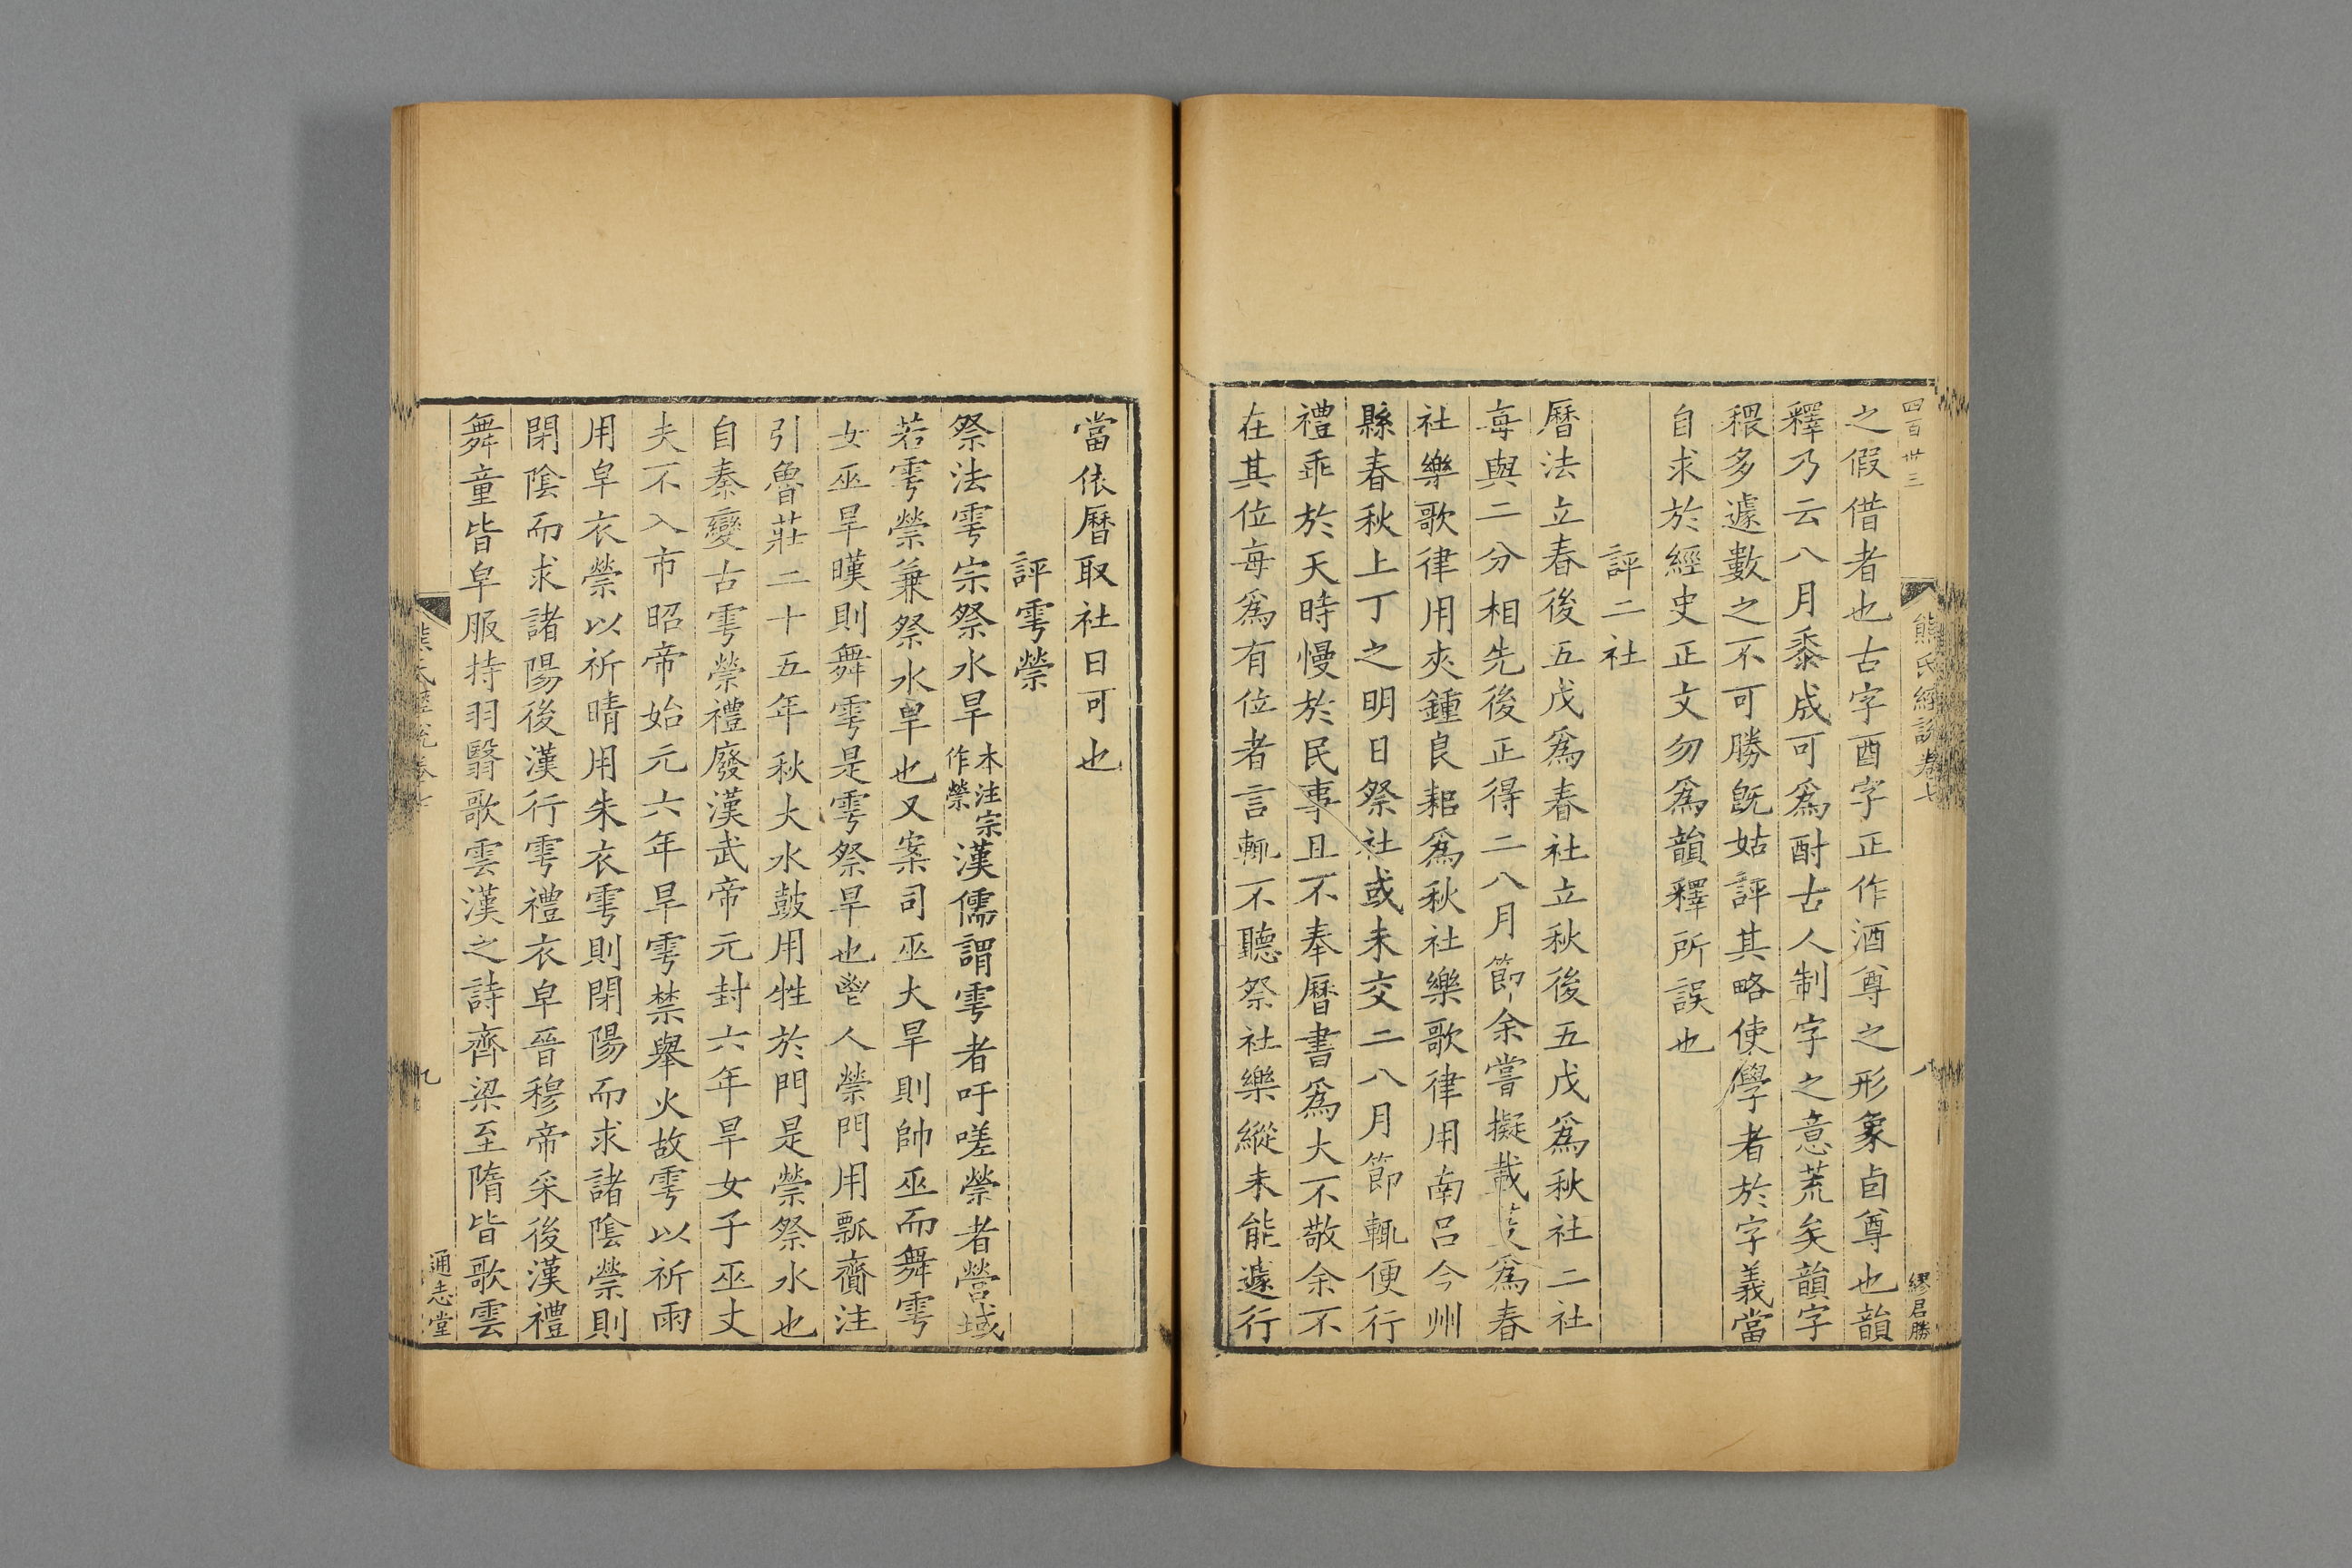 四百卅三
熊氏經說卷七
八
繆君勝
之假借者也古字酉字正作酒尊之形象卣尊也韻
釋乃云八月黍成可爲酎古人制字之意荒矣韻字
猥多遽數之不可勝旣姑評其略使學者於字義當
自求於經史正文勿爲韻釋所誤也
評二社
曆法立春後五戊爲春社立秋後五戊爲秋社二社
每與二分相先後正得二八月節余嘗擬載芟爲春
社樂歌律用夾鍾良耜爲秋社樂歌律用南呂今州
縣春秋上丁之明日祭社或未交二八月節輒便行
禮乖於天時慢於民事且不奉曆書爲大不敬余不
在其位每爲有位者言輒不聽祭社樂縱未能遽行
當依曆取社日可也
評雩禜
祭法雩宗祭水旱本注宗作禜漢儒謂雩者吁嗟禜者營域
若雩禜兼祭水旱也又案司巫大旱則帥巫而舞雩
女巫旱暵則舞雩是雩祭旱也鬯人禜門用瓢齎注
引魯莊二十五年秋大水鼓用牲於門是禜祭水也
自秦變古雩禜禮廢漢武帝元封六年旱女子巫丈
夫不入市昭帝始元六年旱雩禁舉火故雩以祈雨
用皁衣禜以祈晴用朱衣雩則閉陽而求諸陰禜則
閉陰而求諸陽後漢行雩禮衣皁晉穆帝采後漢禮
舞童皆皁服持羽翳歌雲漢之詩齊梁至隋皆歌雲
熊氏經說卷七
九
通志堂